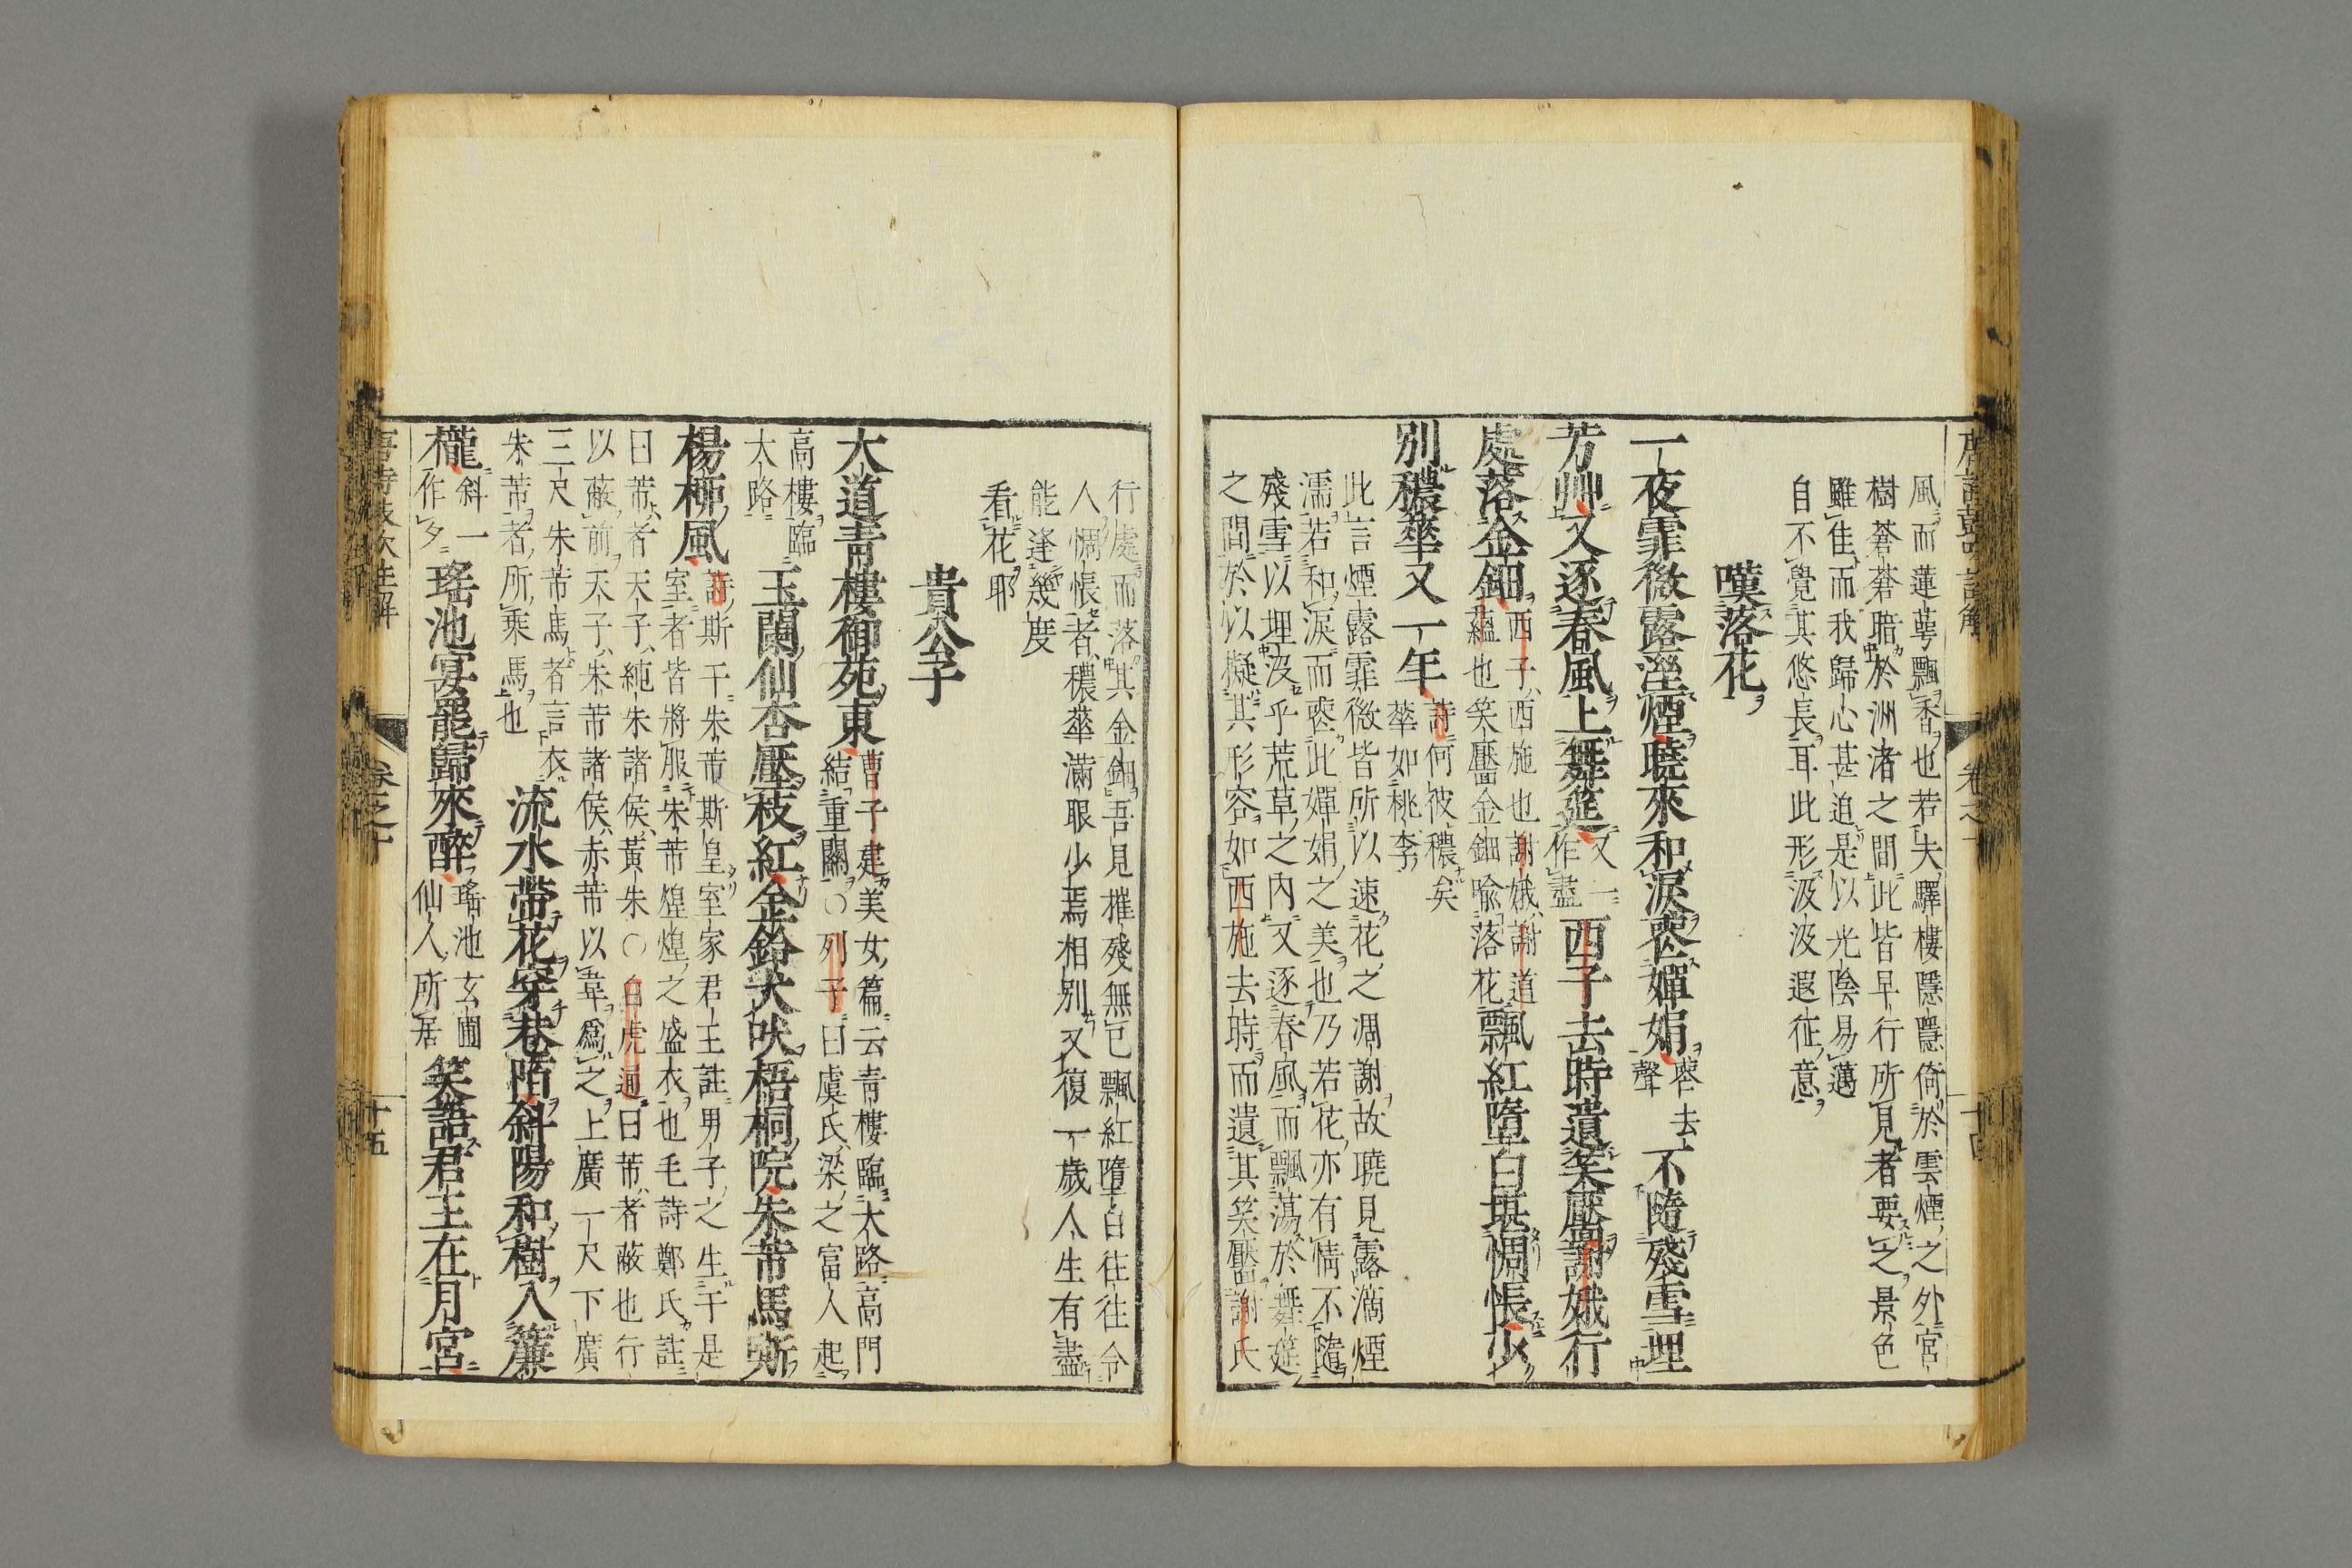 風而蓮萼飄香也若夫驛樓隱隱倚於雲煙之外宮
樹蒼蒼暗於洲渚之間此皆早行所見者要之景色
雖佳而我歸心甚迫是以光陰易邁
自不覺其悠長耳此形汲汲遐征意
嘆落花
一夜霏微露溼煙曉來和淚喪嬋娟
喪去
聲
不隨殘雪埋
芳艸又逐春風上舞筵
又一
作盡
西子去時遺笑靨謝娥行
處落金鈿
西子西施也謝娥謝道
蘊也笑靨金鈿喻落花
飄紅墮白堪惆悵少
別穠華又一年
詩何彼穠矣
華如桃李
此言煙露霏微皆所以速花之凋謝故曉見露滴煙
濡若和淚而喪此嬋娟之美也乃若花亦有情不隨
殘雪以埋沒乎荒草之內又逐春風而飄蕩於舞筵
之間於以擬其形容如西施去時而遺其笑靨謝氏
行處而落其金鈿吾見摧殘無已飄紅墮白往往令
人惆悵者穠華滿眼少焉相別又復一歲人生有盡
能逢幾度
看花耶
貴公子
大道青樓御苑東
曹子建美女篇云青樓臨大路高門
結重關〇列子曰虞氏梁之富人起
高樓臨
大路
玉闌仙杏壓枝紅金鈴犬吠梧桐院朱芾馬嘶
楊柳風
詩斯干朱芾斯皇室家君王註男子之生于是
室者皆將服朱芾煌煌之盛衣也毛詩鄭氏註
曰芾者天子純朱諸侯黃朱〇白虎通曰芾者蔽也行
以蔽前天子朱芾諸侯赤芾以韋爲之上廣一尺下廣
三尺朱芾馬者言衣
朱芾者所乘馬也
流水帶花穿巷陌斜陽和樹入簾
櫳
斜一
作夕
瑤池宴罷歸來醉
瑤池玄圃
仙人所居
笑語君王在月宮
卷之十
十五